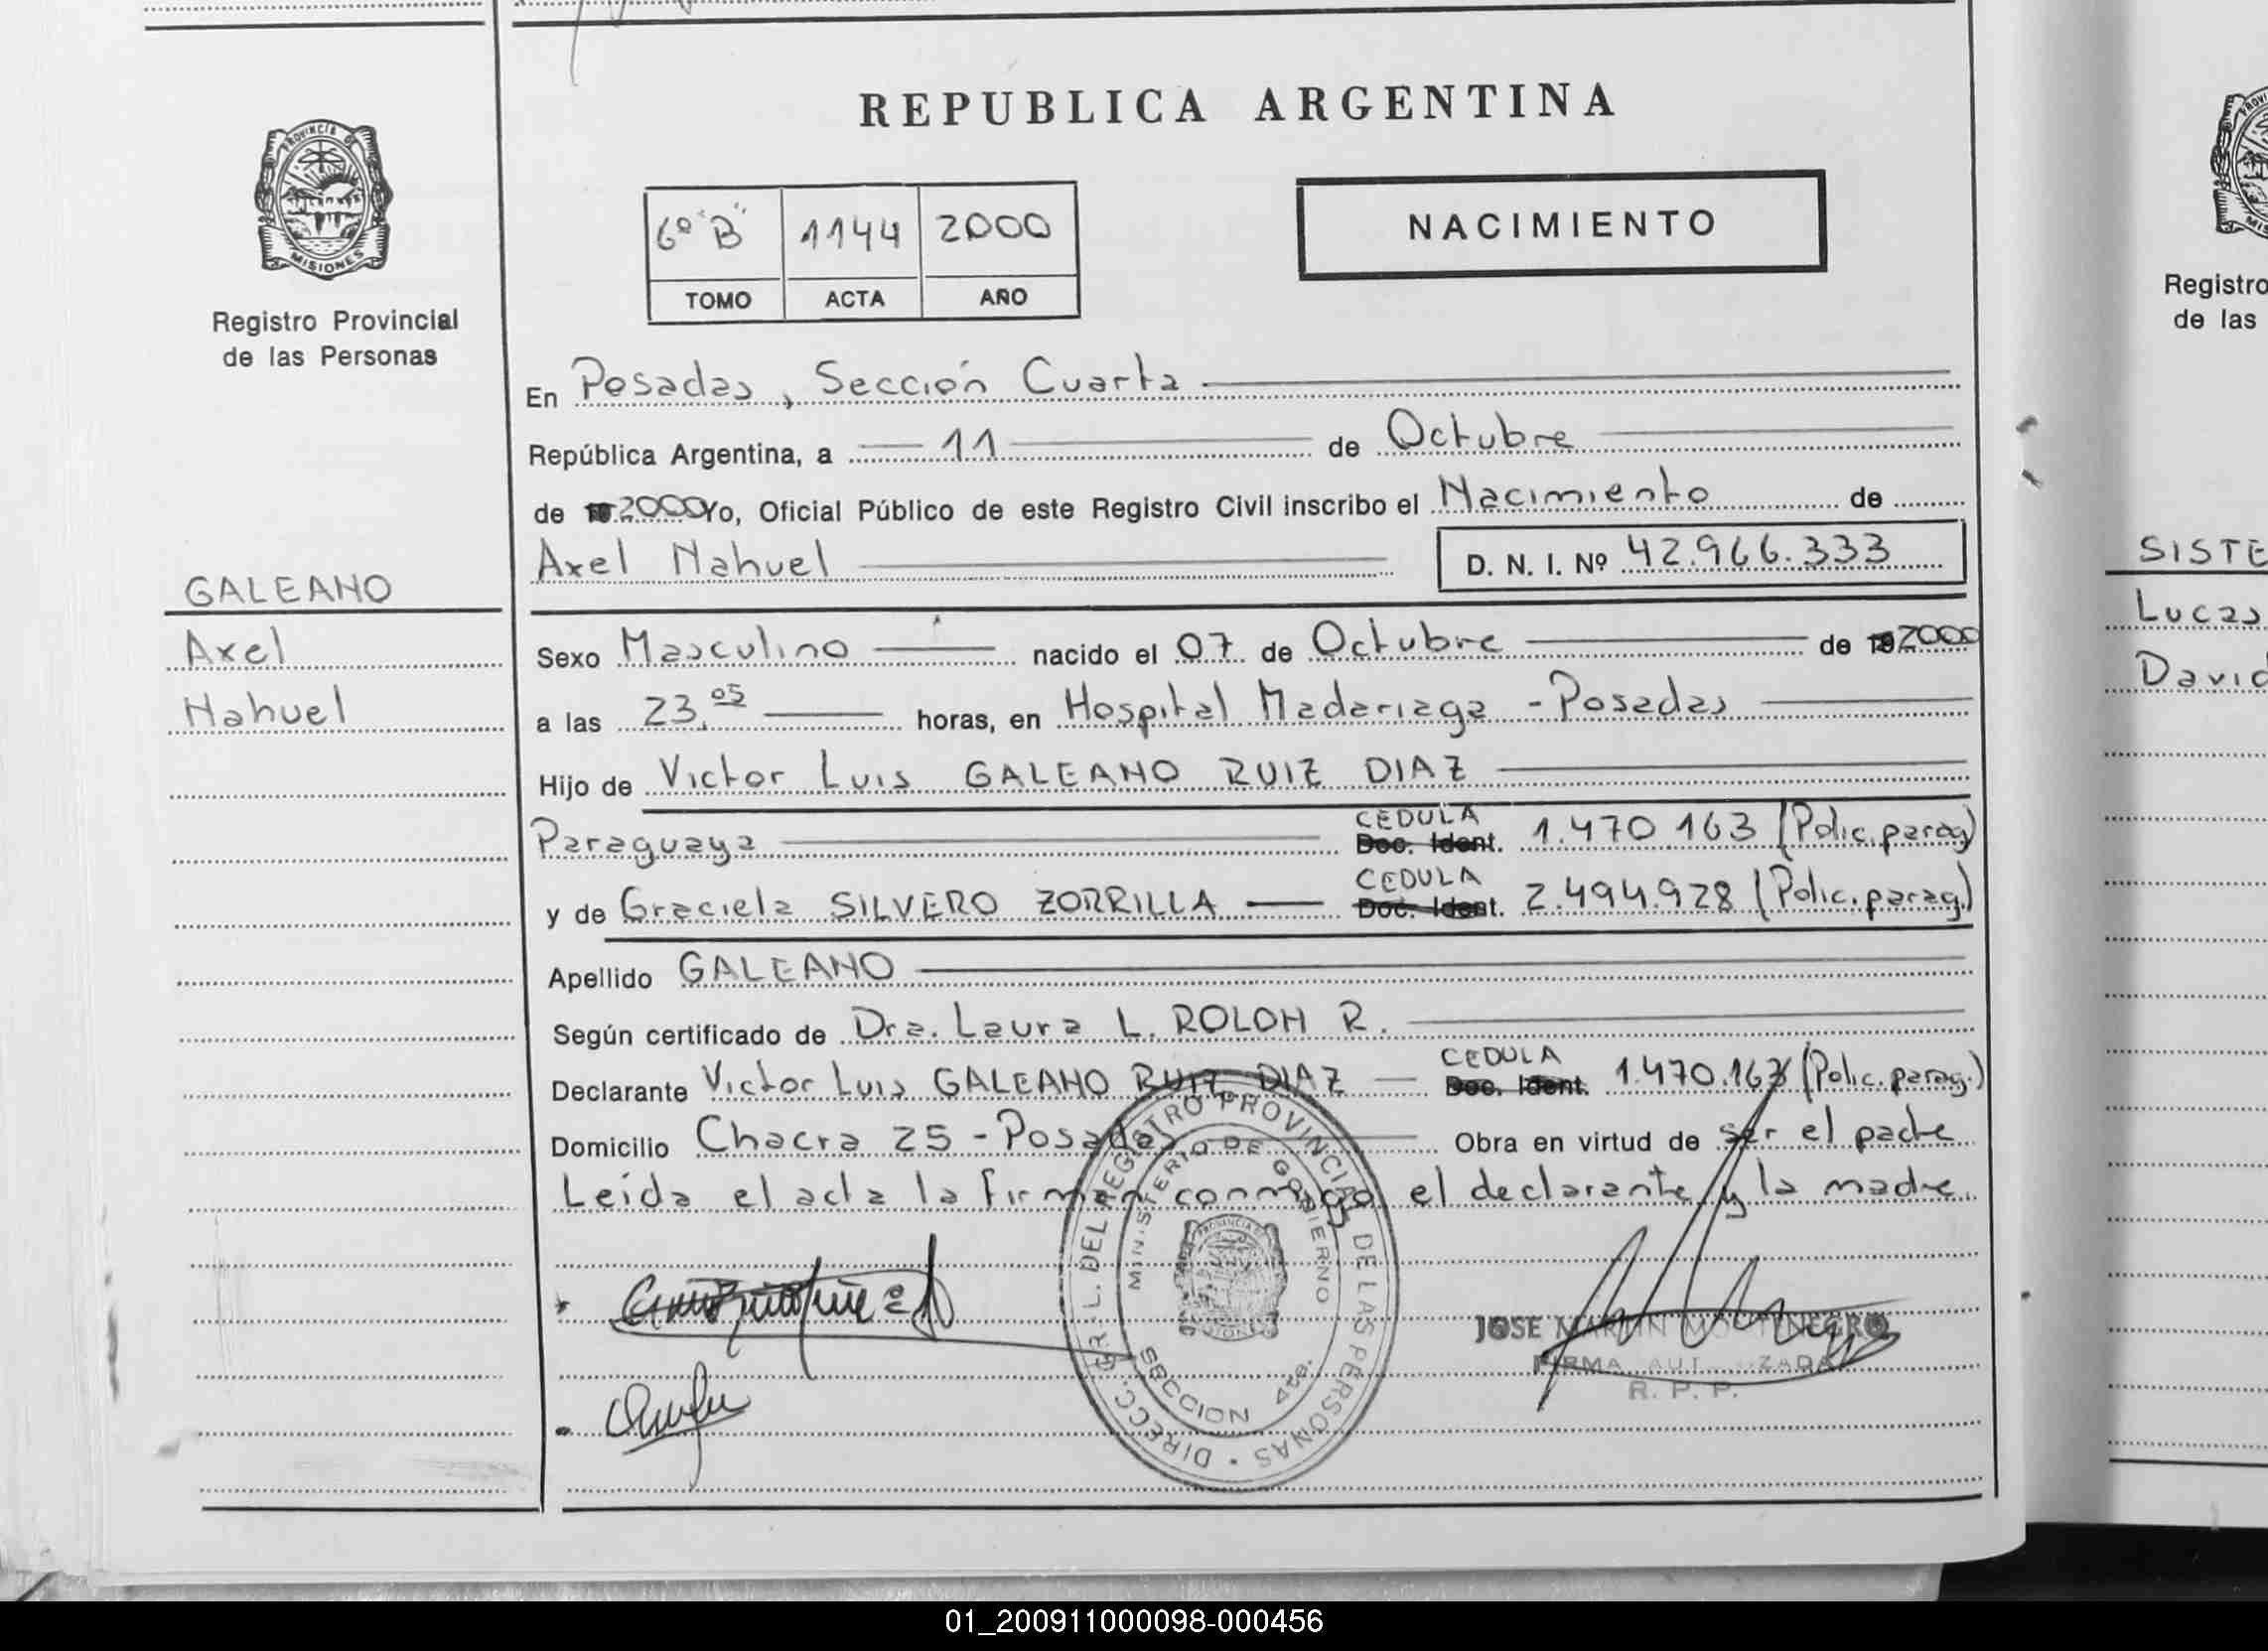 REPUBLICA ARGENTINA
PROVINCIA DE
MISIONES
Registro Provincial
de las Personas
6º "B" 1144 2000
TOMO ACTA AÑO
NACIMIENTO
En Posadas, Sección Cuarta
República Argentina, a 11 de Octubre
de 2000 Yo, Oficial Público de este Registro Civil inscribo el Nacimiento de
Axel Nahuel D. N. I. Nº 42.966.333
GALEANO
Axel
Nahuel
Sexo Masculino nacido el 07 de Octubre de 2000
a las 23.05 horas, en Hospital Madariaga - Posadas
Hijo de Victor Luis GALEANO RUIZ DIAZ
Paraguaya CEDULA Doc. Ident. 1.470 163 (Polic. parag)
y de Graciela SILVERO ZORRILLA CEDULA Doc. Ident. 2.494.928 (Polic. parag.)
Apellido GALEANO
Según certificado de Dra. Laura L. ROLON R.
Declarante Victor Luis GALEANO RUIZ DIAZ CEDULA Doc. Ident. 1.470.163 (Polic. parag.)
Domicilio Chacra 25 - Posadas Obra en virtud de ser el padre
Leída el acta la firman conmigo el declarante y la madre.
DIRECC. GRAL. DEL REGISTRO PROVINCIAL DE LAS PERSONAS
MINISTERIO DE GOBIERNO
SECCION 4ta.
JOSE MARTIN MONTENEGRO
FIRMA AUTORIZADA
R. P. P.
Registro
de las
SISTE
Lucas
David
01_200911000098-000456